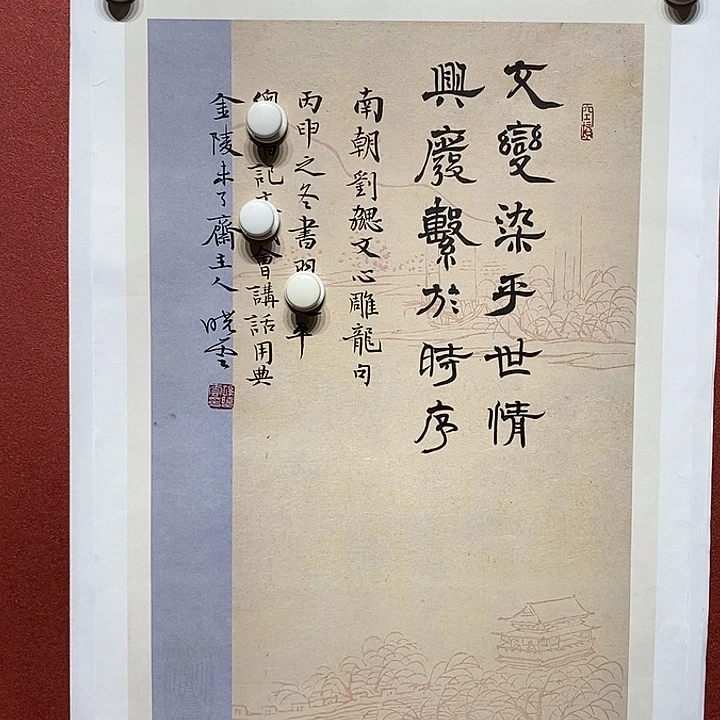 文變染乎世情
興廢繫於時序
南朝劉勰文心雕龍句
丙申之冬書習 平
記 會講話用典
金陵未了齋主人 曉雲